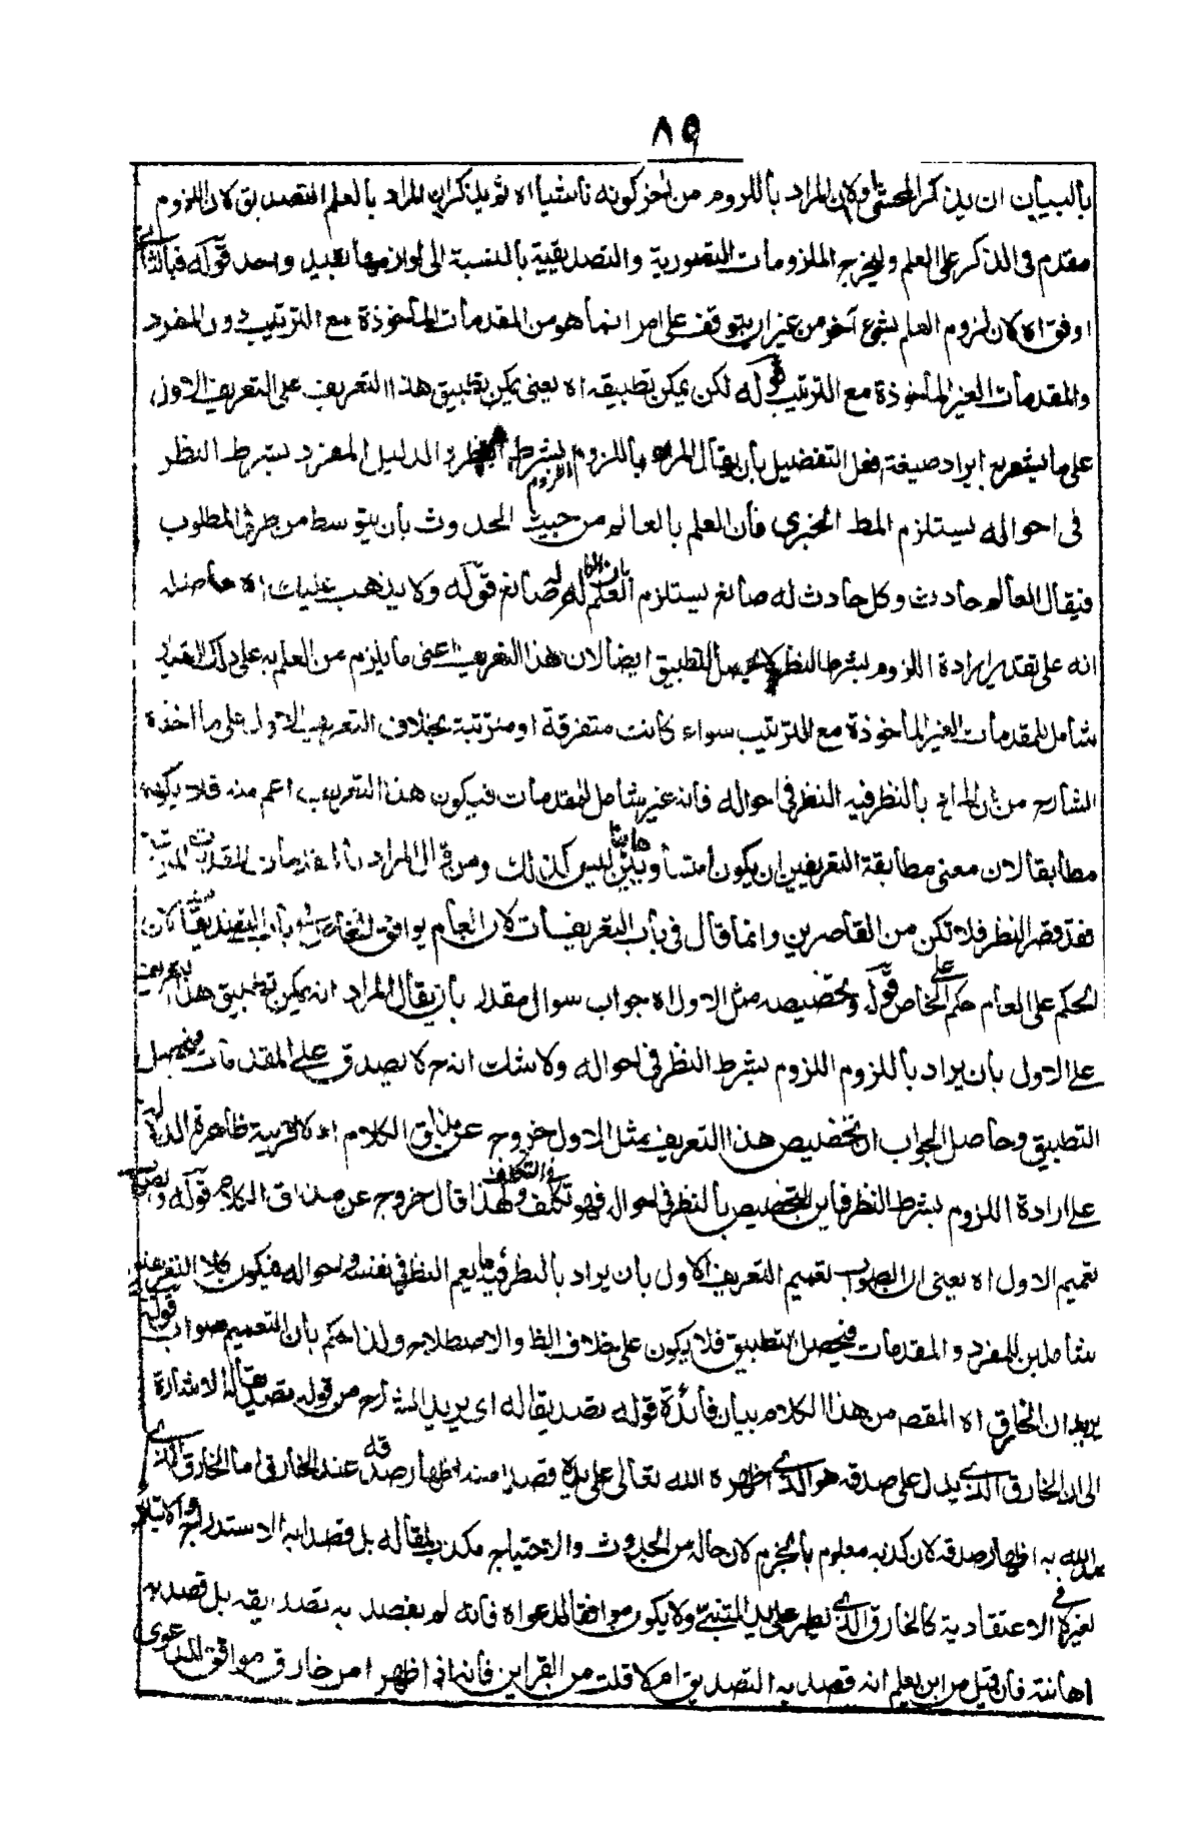 ٨٩
بالبيان ان يذكر المحشى اولا ان المراد باللزوم من آخر كونه ناشئا اه ثم يذكر ان المراد بالعلم التصديق لان اللزوم
مقدم فى الذكر على العلم وليخرج الملزومات التصورية والتصديقية بالنسبة الى لوازمها بقيد واحد قوله فبالثانى
اوفق اه لان لزوم العلم بشئ آخر من غير ان يتوقف على امر انما هو من المقدمات المأخوذة مع الترتيب دون المفرد
والمقدمات الغير المأخوذة مع الترتيب قوله لكن يمكن تطبيقه اه يعنى يمكن تطبيق هذا التعريف على التعريف الاول
على ما يشعر به ايراد صيغة افعل التفضيل بأن يقال المراد باللزوم اللزوم بشرط النظر والدليل المفرد بشرط النظر
فى احواله يستلزم المط الخبرى فان العلم بالعالم من حيث الحدوث بأن يتوسط من طرفى المطلوب
فيقال العالم حادث وكل حادث له صانع يستلزم العلم بان العالم له صانع قوله ولا يذهب عليك اه حاصله
انه على تقدير ارادة اللزوم بشرط النظر لا يحصل التطبيق ايضا لان هذا التعريف اعنى ما يلزم من العلم به على ذلك التقدير
شامل للمقدمات الغير المأخوذة مع الترتيب سواء كانت متفرقة او مترتبة بخلاف التعريف الاول على ما اخذه
الشارح من ان المراد بالنظر فيه النظر فى احواله فانه غير شامل للمقدمات فيكون هذا التعريف اعم منه فلا يكون
مطابقا لان معنى مطابقة التعريفين ان يكونا متساويين وهاهنا ليس كذلك ومن قال المراد بالمقدمات المقدمات المرتبة
فقد قصر النظر فلا تكن من القاصرين وانما قال فى باب التعريفات لان العام يوافق الخاص فى باب التصديقات لان
الحكم على العام حكم على الخاص قوله وتخصيصه مثل الاول اه جواب سوال مقدر بأن يقال المراد انه يمكن تطبيق هذا التعريف
على الاول بأن يراد باللزوم اللزوم بشرط النظر فى احواله ولا شك انه ح لا يصدق على المقدمات فيحصل
التطبيق وحاصل الجواب ان تخصيص هذا التعريف مثل الاول خروج عن مذاق الكلام اذ لا قرينة ظاهرة الدلالة
على ارادة اللزوم بشرط النظر فاين التخصيص بالنظر فى احواله فهو تكلف فى التكلف ولهذا قال خروج عن مذاق الكلام قوله والصواب
تعميم الاول اه يعنى ان الصواب تعميم التعريف الاول بان يراد بالنظر فيه ما يعم النظر فى نفسه واحواله فيكون كلا التعريفين
شاملين للمفرد والمقدمات فيحصل التطبيق فلا يكون على خلاف الظ والاصطلاح ولذا حكم بان التعميم صواب قوله
يريد ان الخارق اه المقصد من هذا الكلام بيان فائدة قوله تصديقا له اى يريد الشارح من قوله تصديقا له الاشارة
الى ان الخارق الذى يدل على صدقه هو الذى اظهره الله تعالى على يده قصدا منه اظهار صدقه عند الخارق اما الخارق الذى
به اظهار صدقه لان كذبه معلوم بالجزم لان حاله من الحدوث والاحتياج مكذب لمقاله بل قصد به الاستدراج والابتلاء
لغيره فى الاعتقادية كالخارق الذى يظهر على يد المتنبى ولا يكون موافقا لدعواه فانه لم يقصد به تصديقه بل قصد به
اهانته فان قيل من اين يعلم انه قصد به التصديق ام لا قلت من القراين فانه اذا ظهر امر خارق موافق للدعوى